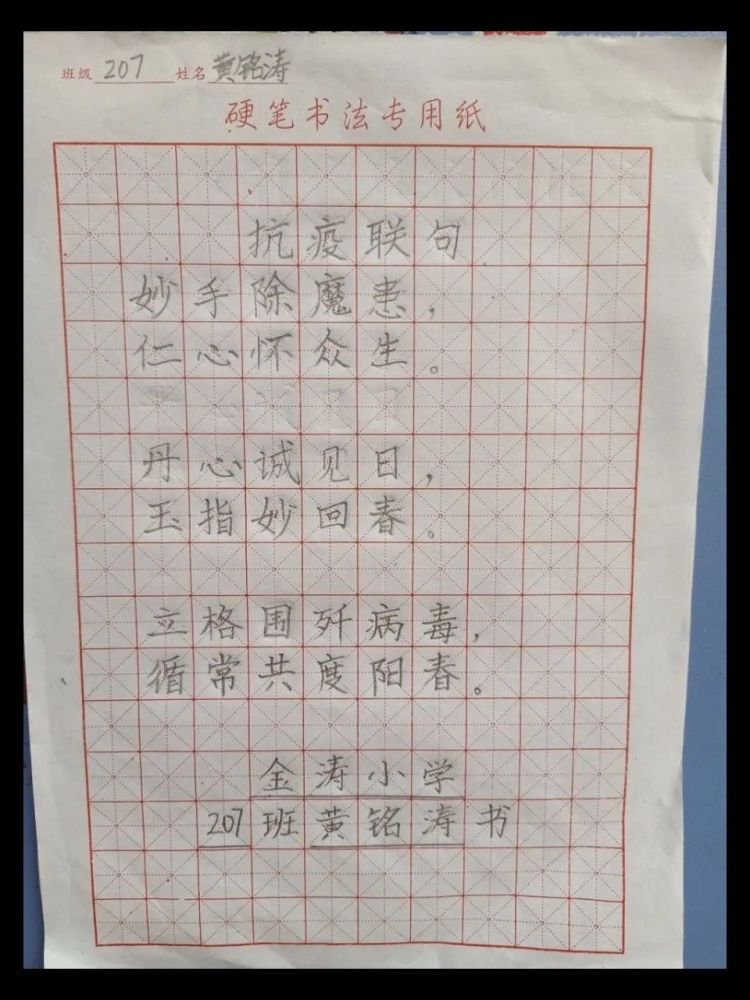 班级 207 姓名 黄铭涛
硬笔书法专用纸
抗疫联句
妙手除魔患，
仁心怀众生。
丹心诚见日，
玉指妙回春。
立格围歼病毒，
循常共度阳春。
金涛小学
207班黄铭涛书